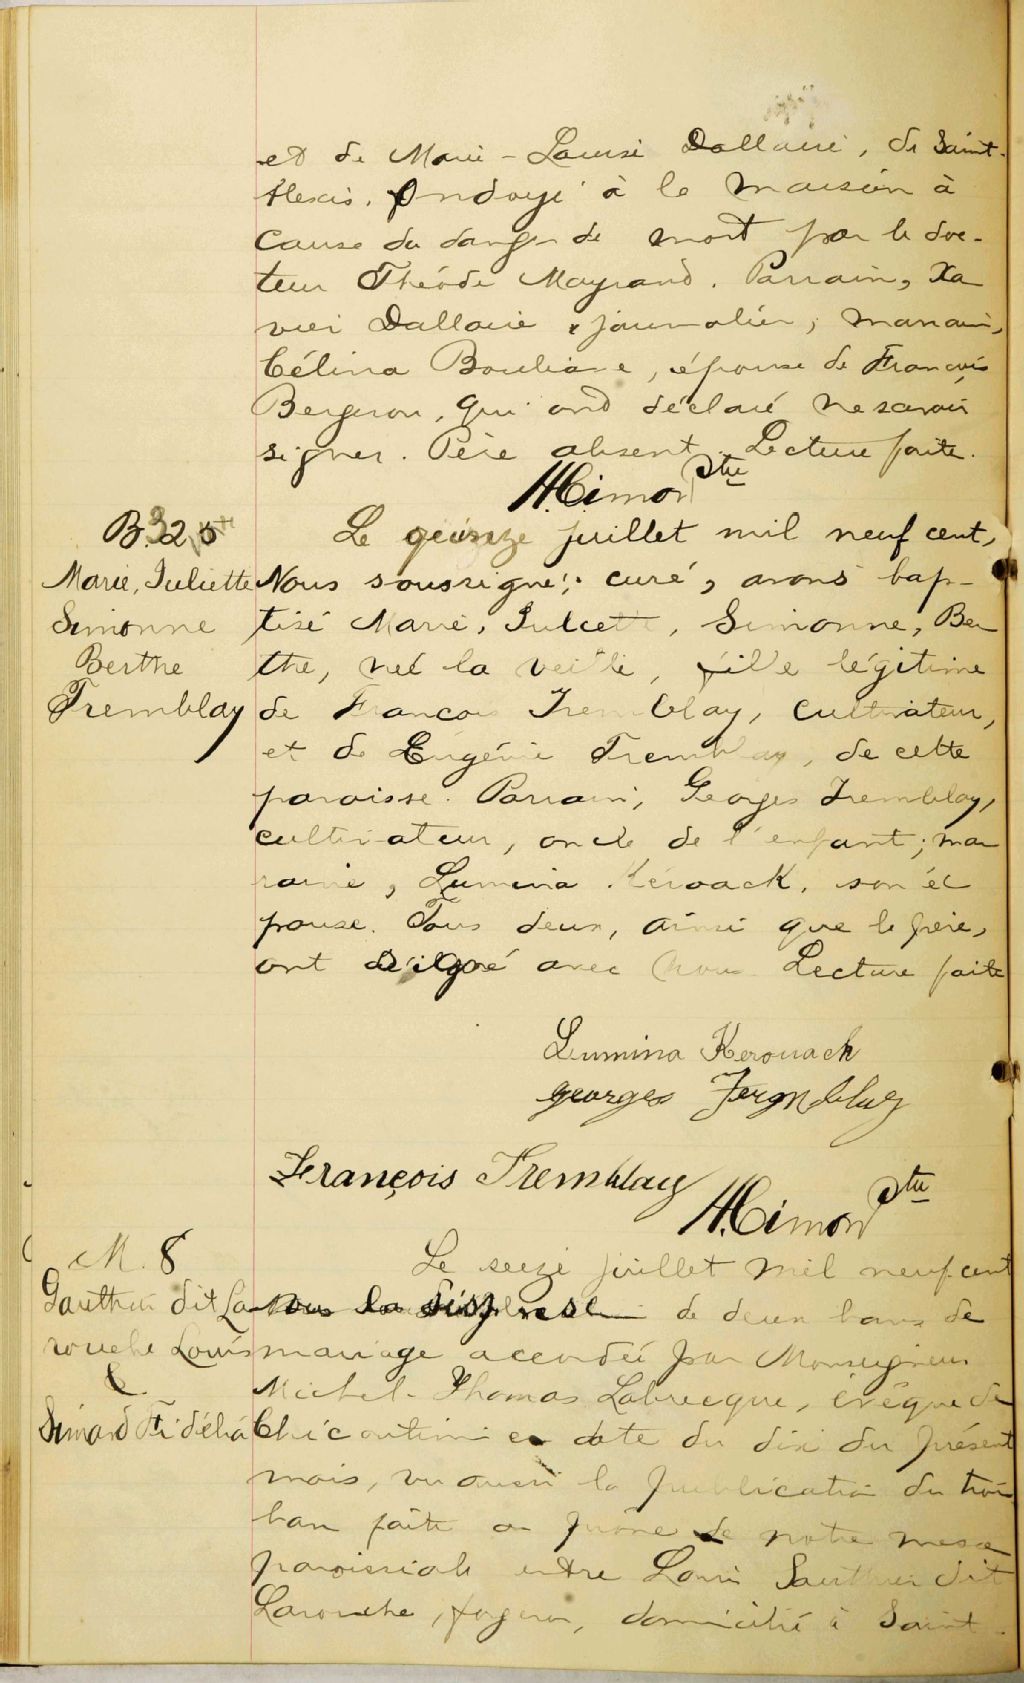 et de Marie-Louise Dallaire, de Saint-
Alexis. Ondoyé à la maison à
cause du danger de mort par le doc-
teur Théode Mayrand. Parrain, Xa
vier Dallaire, journalier, marraine,
Célina Bouliane, épouse de François
Bergeron, qui ont déclaré ne savoir
signer. Père absent. Lecture faite.
H. Cimon Ptre
B. 20
Marie, Juliette
Simonne
Berthe
Tremblay
Le quinze juillet mil neuf cent,
Nous soussigné, curé, avons bap-
tisé Marie, Juliette, Simonne, Ber
the, née la veille, fille légitime
de François Tremblay, cultivateur,
et de Eugénie Tremblay, de cette
paroisse. Parrain, Georges Tremblay,
cultivateur, oncle de l'enfant; mar
raine, Lumina Kéroack, son é
pouse. Tous deux, ainsi que le père,
ont signé avec nous. Lecture faite
Lumina Kerouack
georges Tremblay
François Tremblay
H. Cimon Ptre
M. 8
Gauthier dit La
rouche Louis
&
Simard Fidélia
Le seize juillet mil neuf cent
vu la dispense de deux bans de
mariage accordée par Monseigneur
Michel-Thomas Labrecque, évêque de
Chicoutimi en date du dix du présent
mois, vu aussi la publication du troi
ban faite au prône de notre messe
paroissiale entre Louis Gauthier dit
Larouche, forgeron, domicilié à Saint-